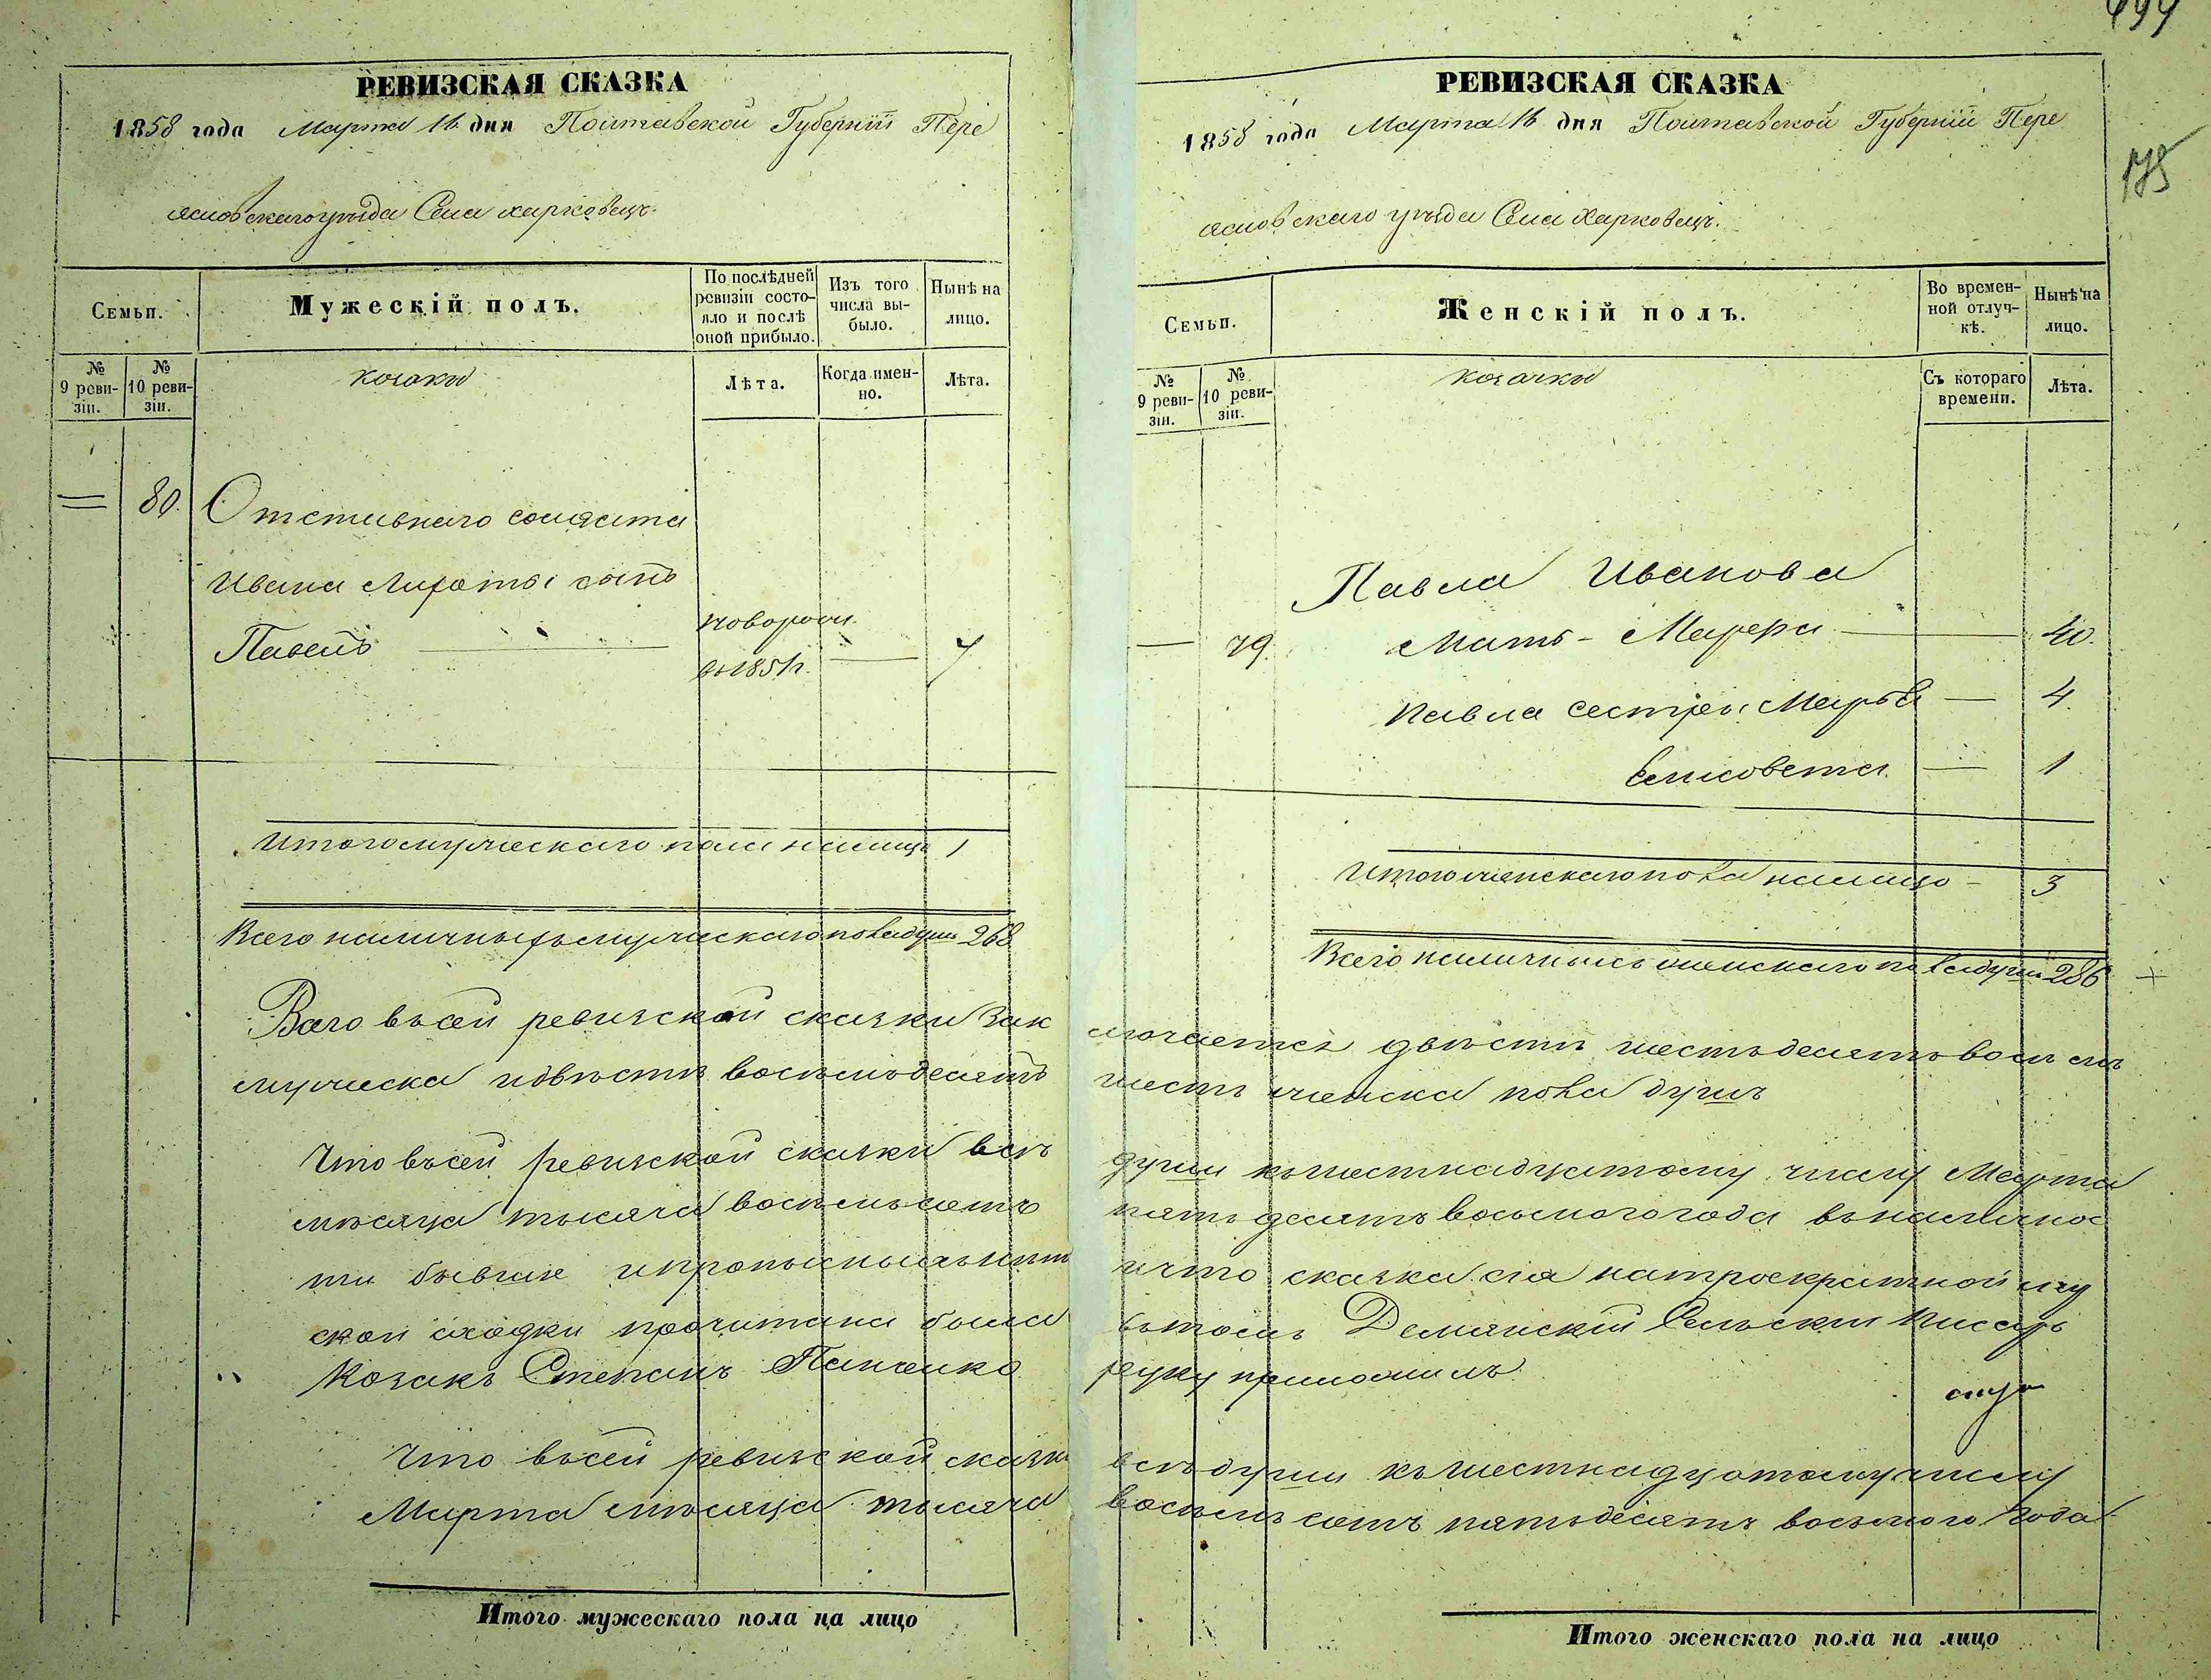 РЕВИЗСКАЯ СКАЗКА
1858 года Марта 16 дня Полтавской Губерніи Пере
яславскаго уѣзда Села Харковецъ.
Семьи.
Мужескій полъ.
По послѣдней ревизіи состояло и послѣ оной прибыло.
Изъ того числа выбыло.
Нынѣ на лицо.
№ 9 ревизіи.
№ 10 ревизіи.
козаки
Лѣта.
Когда именно.
Лѣта.
80.
Отставнаго солдата
Ивана сынъ
Павелъ
новорож.
въ 1851 г.
7
Итого мужескаго пола налицо 1
Всего наличныхъ мужескаго пола душъ 268
Всего въ сей ревизской сказки Зак
мужеска и двѣсти восемьдесятъ
Что въ сей ревизской сказки всѣ
мѣсяца тысяча восемьсотъ
ти бывшіе и прописныхъ нѣтъ
ской сходки прочитана была
Козакъ Степанъ Панченко
Что въ сей ревизской сказки
Марта мѣсяца тысяча
Итого мужескаго пола на лицо
РЕВИЗСКАЯ СКАЗКА
1858 года Марта 16 дня Полтавской Губерніи Пере
яславскаго уѣзда Села Харковецъ.
175
Семьи.
Женскій полъ.
Во временной отлучкѣ.
Нынѣ на лицо.
№ 9 ревизіи.
№ 10 ревизіи.
козачки
Съ котораго времени.
Лѣта.
Павла Иванова
79. Мать - 40.
Павла сестры Марья 4
Елисовета 1
Итого женскаго пола налицо - 3
Всего наличныхъ женскаго пола душъ 286
лючается двѣсти шестьдесятъ восемъ
шесть женска пола душъ
души къ шестнадцатому числу Марта
пятьдесятъ восьмого года въ наличнос
и что сказка сія на троекратной
въ томъ Демянскій Сельскій Писарь
руку приложилъ
всѣ души къ шестнадцатому числу
восемъ сотъ пятьдесятъ восьмого Года
Итого женскаго пола на лицо